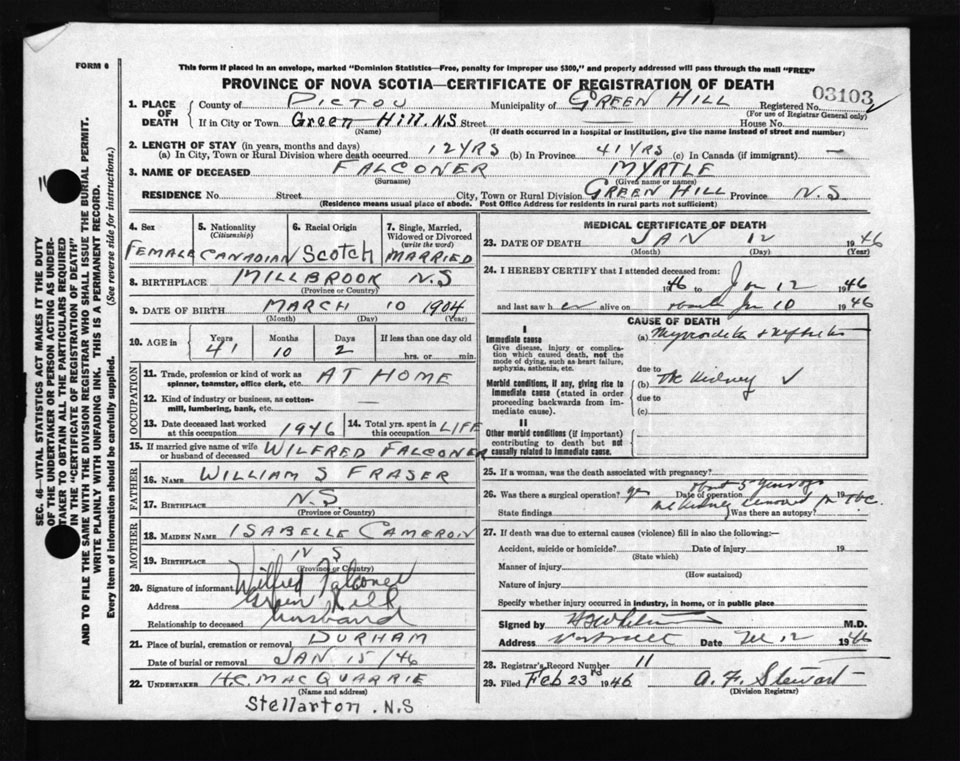 FORM 6
This form if placed in an envelope, marked "Dominion Statistics—Free, penalty for improper use $300," and properly addressed will pass through the mail "FREE"
PROVINCE OF NOVA SCOTIA—CERTIFICATE OF REGISTRATION OF DEATH
03103
1. PLACE OF DEATH County of PICTOU Municipality of GREEN HILL Registered No.
(For use of Registrar General only)
If in City or Town Green Hill. N.S Street House No.
(Name) (If death occurred in a hospital or institution, give the name instead of street and number)
2. LENGTH OF STAY (in years, months and days)
(a) In City, Town or Rural Division where death occurred 12 YRS (b) In Province 41 YRS (c) In Canada (if immigrant) —
3. NAME OF DECEASED FALCONER MYRTLE
(Surname) (Given name or names)
RESIDENCE No. Street City, Town or Rural Division GREEN HILL Province N.S
(Residence means usual place of abode. Post Office Address for residents in rural parts not sufficient)
4. Sex 5. Nationality (Citizenship) 6. Racial Origin 7. Single, Married, Widowed or Divorced (write the word)
FEMALE CANADIAN Scotch MARRIED
8. BIRTHPLACE MILLBROOK N.S
(Province or Country)
9. DATE OF BIRTH MARCH 10 1904
(Month) (Day) (Year)
10. AGE in Years Months Days If less than one day old
41 10 2 hrs. or min.
OCCUPATION
11. Trade, profession or kind of work as spinner, teamster, office clerk, etc. AT HOME
12. Kind of industry or business, as cotton-mill, lumbering, bank, etc. —
13. Date deceased last worked at this occupation 1946 14. Total yrs. spent in this occupation LIFE
15. If married give name of wife or husband of deceased WILFRED FALCONER
FATHER
16. NAME WILLIAM S FRASER
17. BIRTHPLACE N.S
(Province or Country)
MOTHER
18. MAIDEN NAME ISABELLE CAMERON
19. BIRTHPLACE N S
(Province or Country)
20. Signature of informant Wilfred Falconer
Address Green Hill
Relationship to deceased husband
21. Place of burial, cremation or removal DURHAM
Date of burial or removal JAN 15/46
22. UNDERTAKER H.C. MACQUARRIE
(Name and address)
Stellarton. N.S
MEDICAL CERTIFICATE OF DEATH
23. DATE OF DEATH JAN 12 1946
(Month) (Day) (Year)
24. I HEREBY CERTIFY that I attended deceased from:
1946 to Jan 12 1946
and last saw her alive on about Jan 10 1946
CAUSE OF DEATH
I
Immediate cause
Give disease, injury or complication which caused death, not the mode of dying, such as heart failure, asphyxia, asthenia, etc.
(a) Myocarditis & Nephritis
due to
Morbid conditions, if any, giving rise to immediate cause (stated in order proceeding backwards from immediate cause).
(b) kidney
due to
(c)
II
Other morbid conditions (if important) contributing to death but not causally related to immediate cause.
25. If a woman, was the death associated with pregnancy?
26. Was there a surgical operation? yes Date of operation about 5 years ago 19
State findings kidney removed for Tbc. Was there an autopsy?
27. If death was due to external causes (violence) fill in also the following:—
Accident, suicide or homicide? Date of injury 19
(State which)
Manner of injury
(How sustained)
Nature of injury
Specify whether injury occurred in industry, in home, or in public place
Signed by M.D.
Address Date 12 1946
28. Registrar's Record Number 11
29. Filed Feb 23rd 1946 A. F. Stewart
(Division Registrar)
SEC. 46—VITAL STATISTICS ACT MAKES IT THE DUTY
OF THE UNDERTAKER OR PERSON ACTING AS UNDER-
TAKER TO OBTAIN ALL THE PARTICULARS REQUIRED
IN THE "CERTIFICATE OF REGISTRATION OF DEATH"
AND TO FILE THE SAME WITH THE DIVISION REGISTRAR WHO SHALL ISSUE THE BURIAL PERMIT.
WRITE PLAINLY WITH UNFADING INK. THIS IS A PERMANENT RECORD.
Every item of information should be carefully supplied. (See reverse side for instructions.)